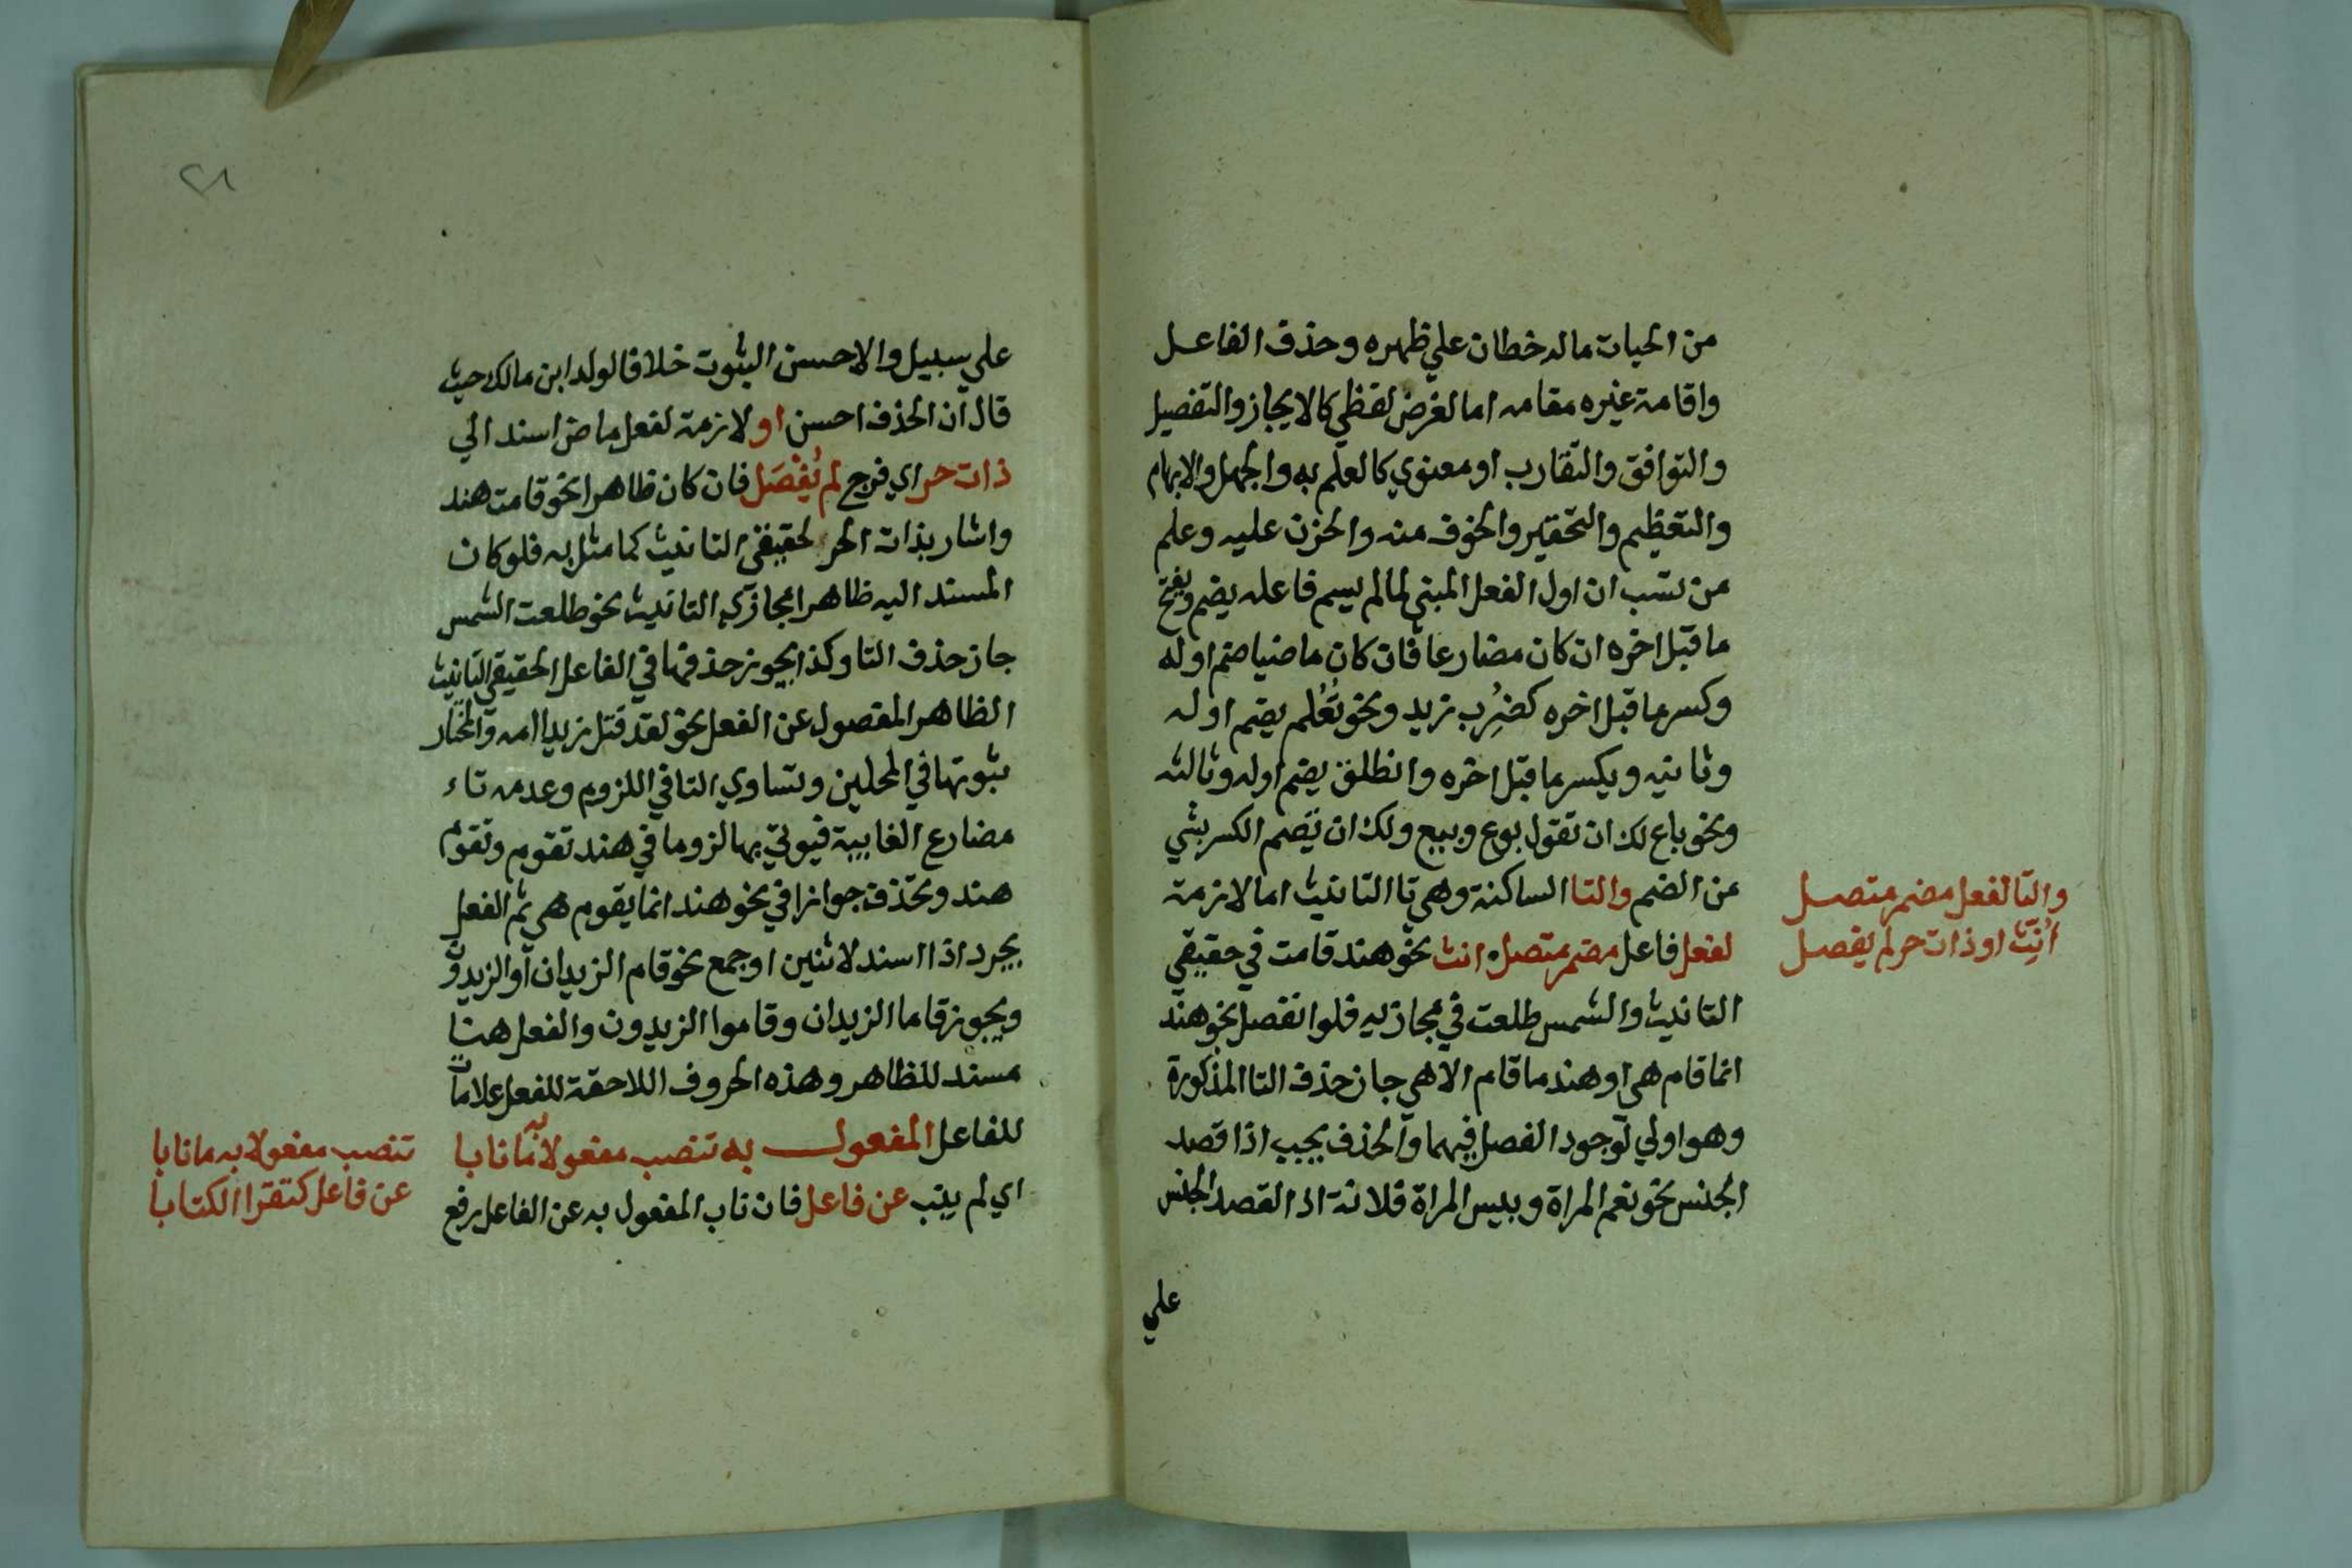 من الحيات ماله خطان علي ظهره وحذف الفاعل
واقامة غيره مقامه اما لغرض لفظي كالايجاز والتفصيل
والتوافق والتقارب او معنوي كالعلم به والجهل والابهام
والتعظيم والتحقير والخوف منه والحزن عليه وعلم
من ان اول الفعل المبني لما لم يسم فاعله يضم ويفتح
ما قبل اخره ان كان مضارعا فان كان ماضيا ضم اوله
وكسر ما قبل اخره كضُرِب زيد ونحو تُعُلم يضم اوله
وثانيه ويكسر ما قبل اخره وانطلق يضم اوله وثالثه
ونحو باع لك ان تقول بوع وبيع ولك ان تشم الكسر بشي
من الضم والتا الساكنة وهي تا التانيث اما لازمة
لفعل فاعل مضمر متصل انث نحو هند قامت في حقيقي
التانيث والشمس طلعت في مجازيه فلو انفصل نحو هند
انما قام هي او هند ما قام الا هي جاز حذف التا المذكورة
وهو اولي لوجود الفصل فيهما والحذف يجب اذا قصد
الجنس نحو نعم المراة وبيس المراة فلانة اذ القصد الجنس
علي
والتا لفعل مضمر متصل
اُنِّث او ذات حر لم يفصل
٢٨
علي سبيل والاحسن الثبوت خلافا لولد ابن مالك حيث
قال ان الحذف احسن او لازمة لفعل ماض اسند الي
ذات حر اي فرج لم يُفْصَل فان كان ظاهرا نحو قامت هند
واشار بذات الحر لحقيقي التانيث كما مثل به فلو كان
المسند اليه ظاهرا مجازي التانيث نحو طلعت الشمس
جاز حذف التا وكذا يجوز حذفها في الفاعل الحقيقي التانيث
الظاهر المفصول عن الفعل نحو لقد قتل زيدا امه والمختار
ثبوتها في المحلين وتساوي التا في اللزوم وعدمه تاء
مضارع الغايبة فيوتي بها لزوما في هند تقوم وتقوم
هند وتحذف جوازا في نحو هند انما يقوم هي ثم الفعل
يجرد اذا اسند لاثنين او جمع نحو قام الزيدان او الزيدون
ويجوز قاما الزيدان وقاموا الزيدون والفعل هنا
مسند للظاهر وهذه الحروف اللاحقة للفعل علامات
للفاعل المفعول به تنصب مفعولا به ما نابا
اي لم ينب عن فاعل فان ناب المفعول به عن الفاعل رفع
تنصب مفعولا به ما نابا
عن فاعل كتقرا الكتابا